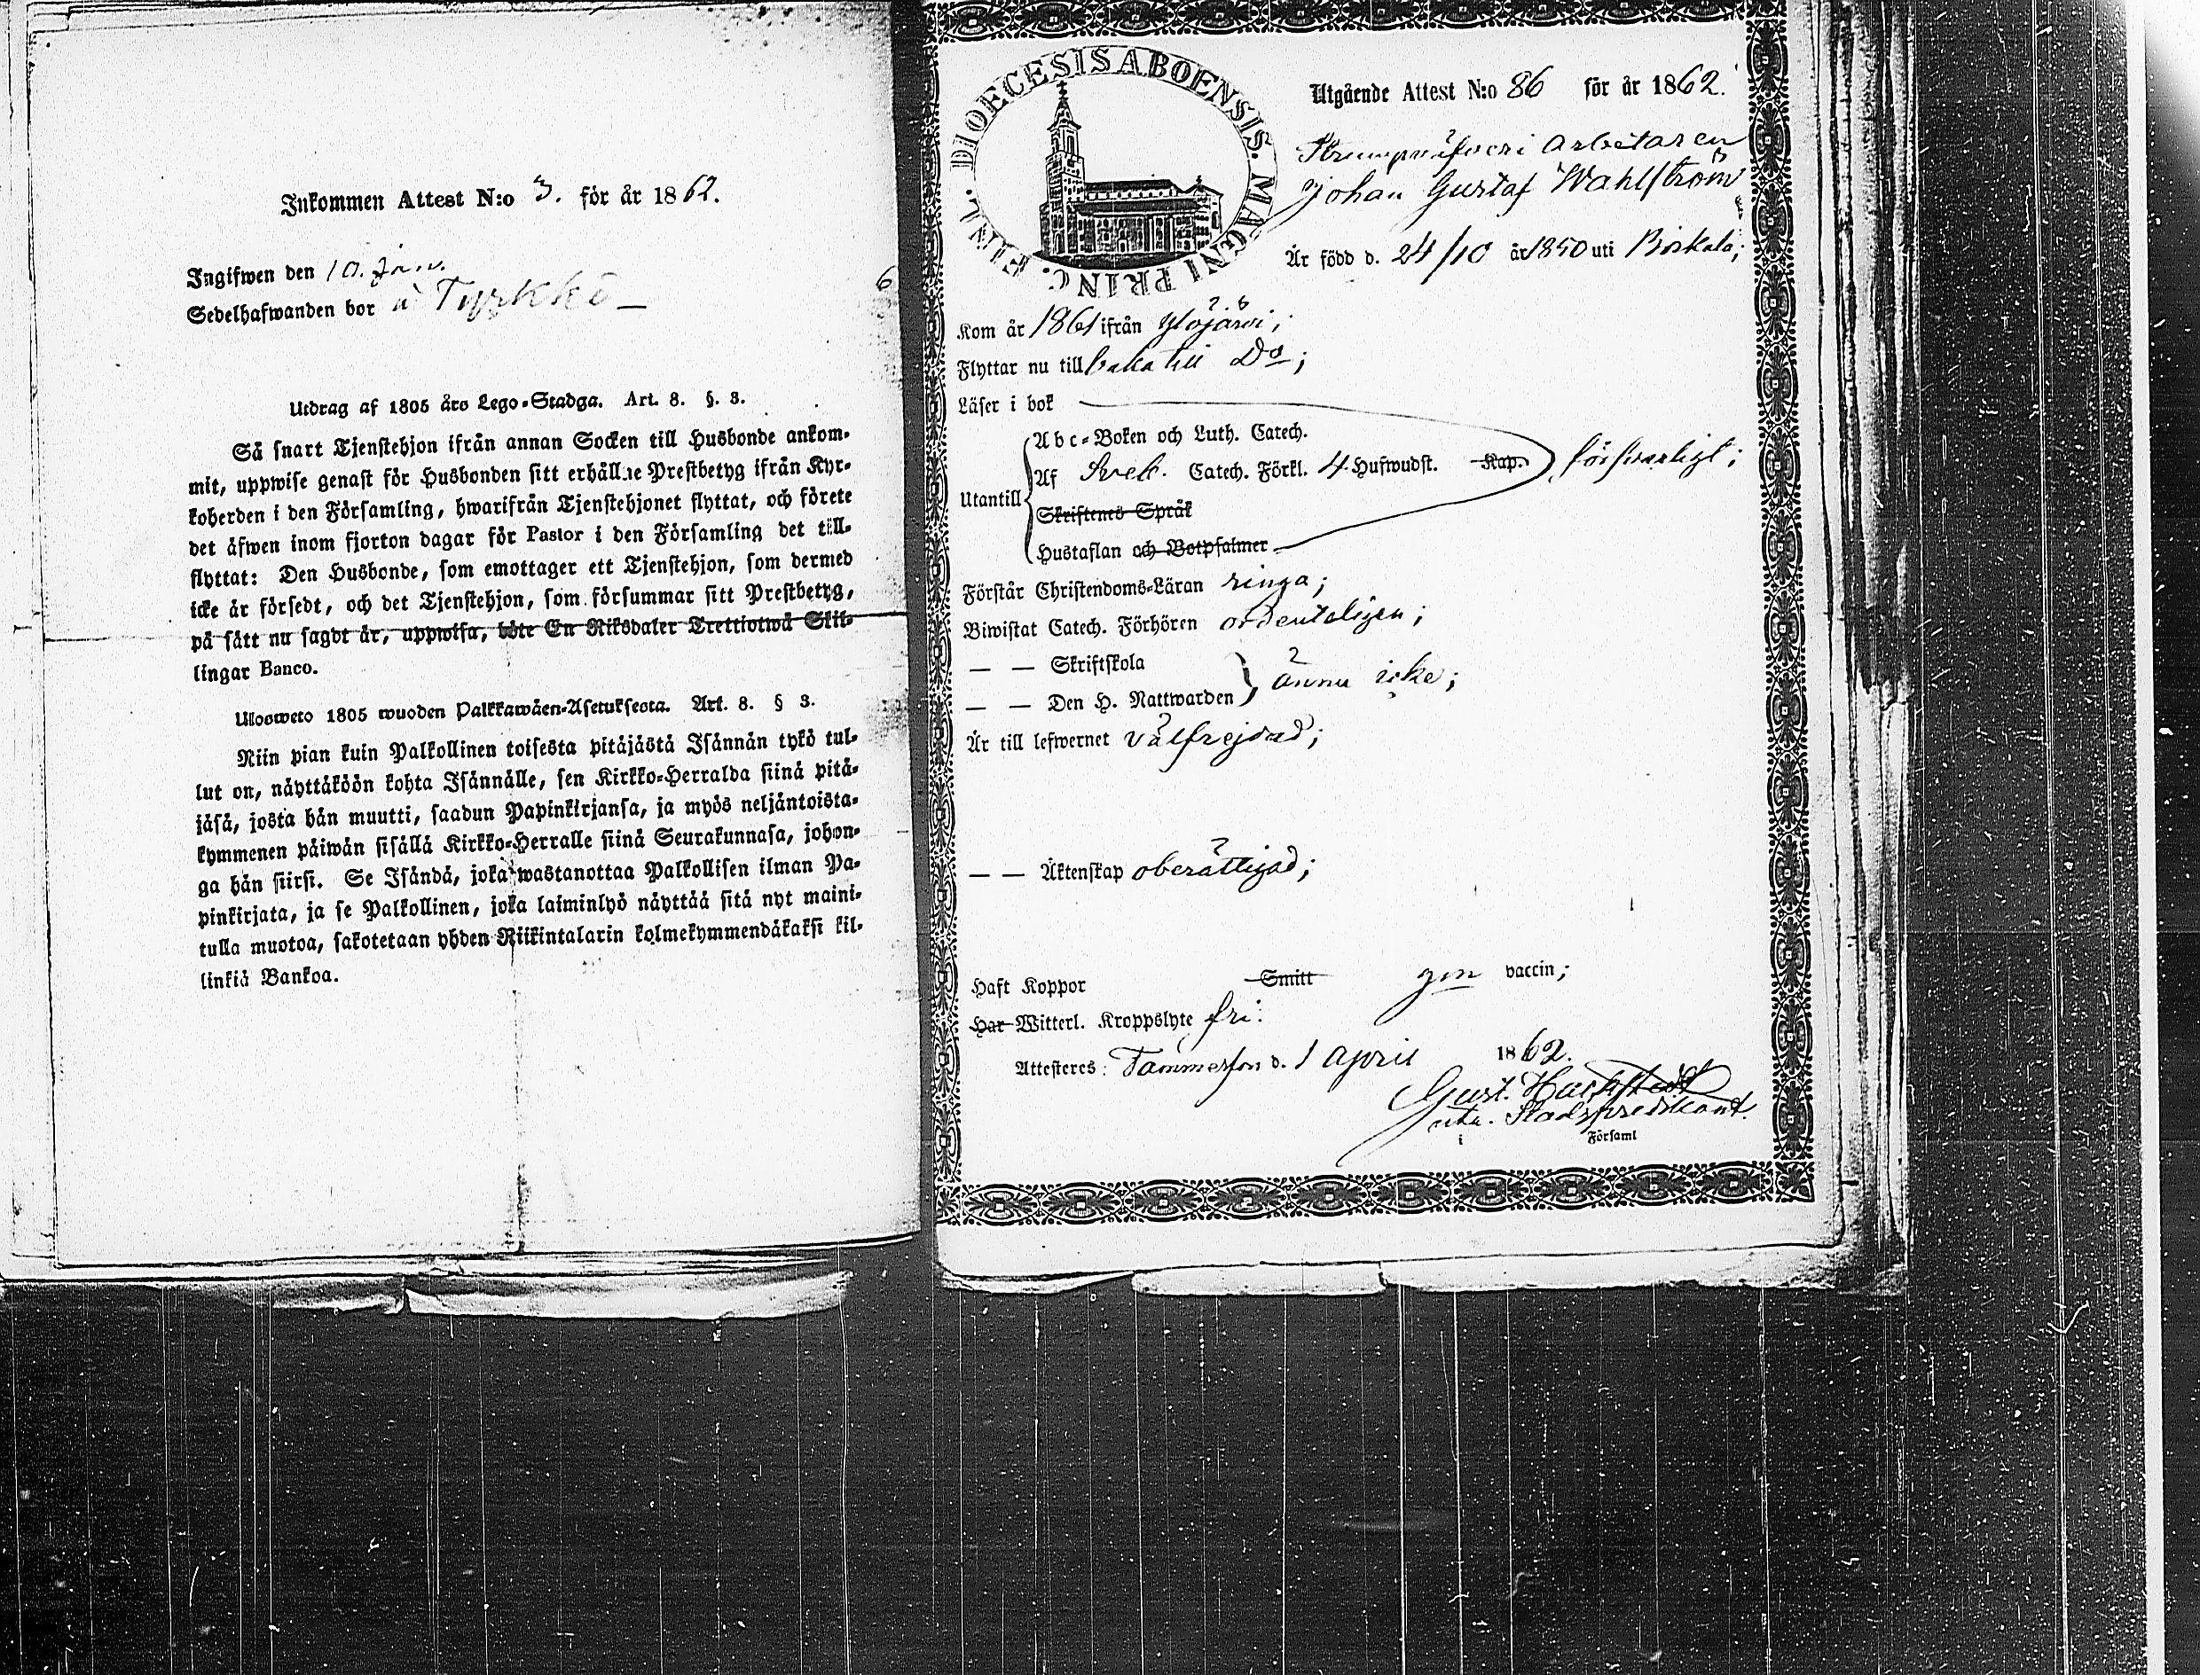 Inkommen Attest N:o 3. för år 1862.
Ingifwen den 10. Jan.
Sedelhafwanden bor å Tyrkkö
Utdrag af 1805 års Lego-Stadga. Art. 8. §. 3.
Så snart Tjenstehjon ifrån annan Socken till Husbonde ankom-
mit, uppwise genast för Husbonden sitt erhållne Prestbetyg ifrån Kyr-
koherden i den Församling, hwarifrån Tjenstehjonet flyttat, och förete
det äfwen inom fjorton dagar för Pastor i den Församling det till-
flyttat: Den Husbonde, som emottager ett Tjenstehjon, som dermed
icke är försedt, och det Tjenstehjon, som försummar sitt Prestbetyg,
på sätt nu sagdt är, uppwisa, böte En Riksdaler Trettiotwå Skil-
lingar Banco.
Ulosweto 1805 wuoden Palkkawäen-Asetuksesta. Art. 8. § 3.
Niin pian kuin Palkollinen toisesta pitäjästä Isännän tykö tul-
lut on, näyttäköön kohta Isännälle, sen Kirkko-Herralda siinä pitä-
jäsä, josta hän muutti, saadun Papinkirjansa, ja myös neljäntoista-
kymmenen päiwän sisällä Kirkko-Herralle siinä Seurakunnasa, johon-
ga hän siirsi. Se Isändä, joka wastanottaa Palkollisen ilman Pa-
pinkirjata, ja se Palkollinen, joka laiminlyö näyttää sitä nyt maini-
tulla muotoa, sakotetaan yhden Riikintalarin kolmekymmendäkaksi kil-
linkiä Bankoa.
6
DIOECESIS ABOENSIS. MAGNI PRINC. FINL.
Utgående Attest N:o 86 för år 1862.
Strumpväfveri Arbetaren
Johan Gustaf Wahlström
Är född d. 24/10 år 1850 uti Birkala;
Kom år 1861 ifrån Ylöjärvi;
Flyttar nu tillbaka till Do;
Läser i bok
Abc-Boken och Luth. Catech.
Utantill Af Sveb. Catech. Förkl. 4 Hufwudst. Kap. försvarligt;
Skriftenes Språk
Hustaflan och Botpsalmer
Förstår Christendoms-Läran ringa;
Biwistat Catech. Förhören ordenteligen;
— — Skriftskola
— — Den H. Nattwarden ännu icke;
Är till lefwernet välfrejdad;
— — Äktenskap oberättigad;
Haft Koppor Smitt gm vaccin;
Har Witterl. Kroppslyte fri.
Attesteres: Tammerfors d. 1 April 1862.
Gust.
Stadspredikant.
i Församl